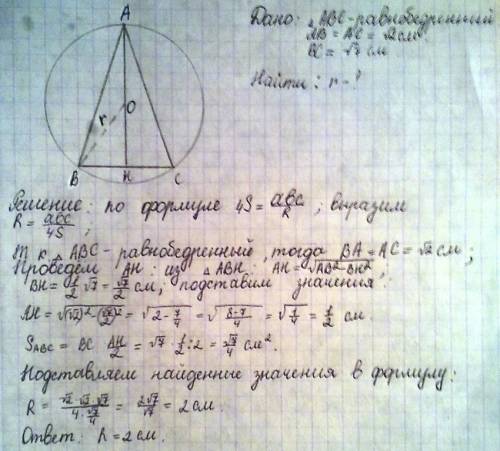 A
O
r
B
H
C
Дано: △ABC-равнобедренный
AB = AC = √2 см.
BC = √7 см
Найти: r - ?
Решение: по формуле 4S = abc/R ; выразим
R = abc/4S ;
Т.к. △ABC-равнобедренный, тогда BA = AC = √2 см;
Проведем AH: из △ABH: AH = √(AB² - BH²) ;
BH = 1/2 √7 = √7/2 см; подставим значения:
AH = √((√2)² - (√7/2)²) = √(2 - 7/4) = √((8-7)/4) = √(1/4) = 1/2 см.
S ABC = BC · AH/2 = √7 · 1/2 : 2 = √7/4 см².
Подставляем найденные значения в формулу:
R = (√2 · √2 · √7)/(4 · √7/4) = 2√7/√7 = 2 см.
Ответ: R = 2 см.